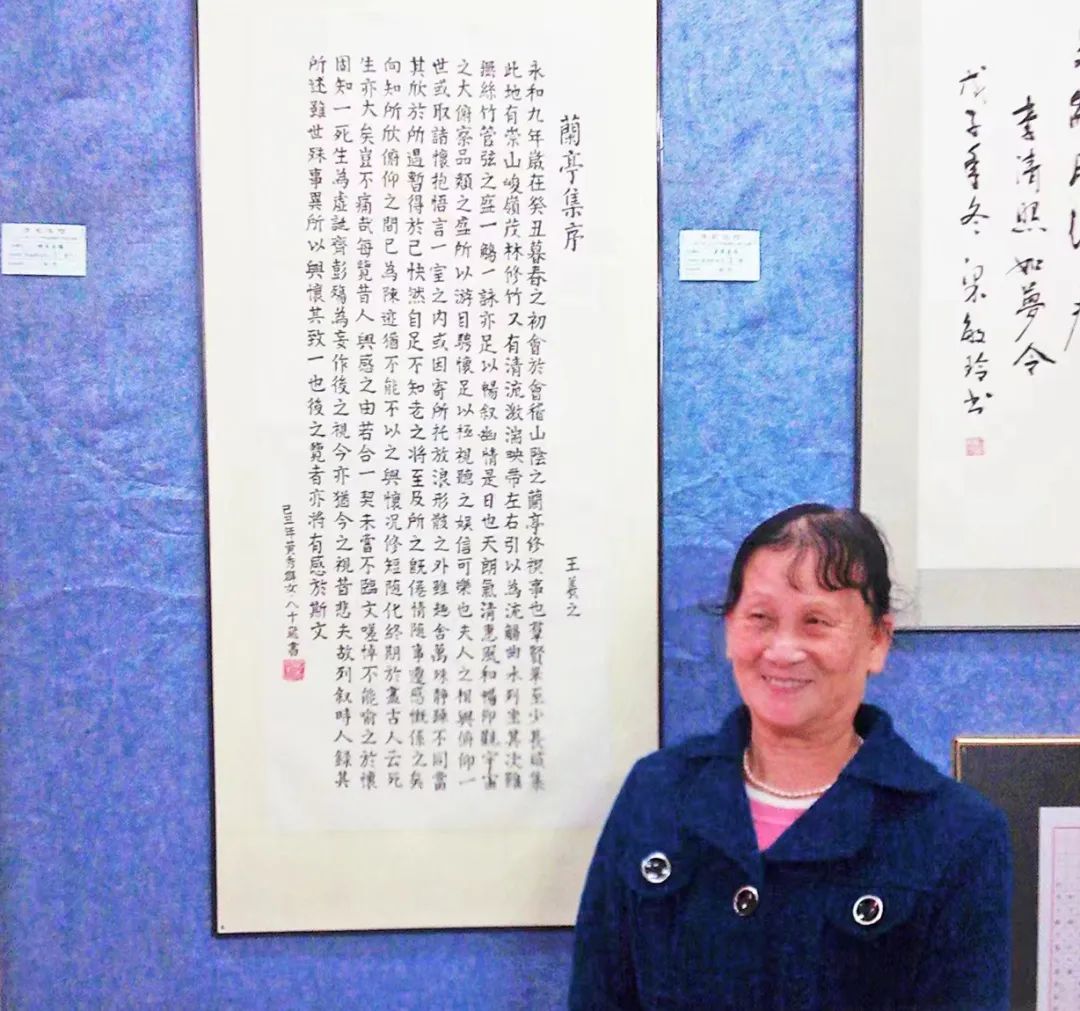 李清照如夢令
戊子年冬梁敏玲书
蘭亭集序
王羲之
永和九年歲在癸丑暮春之初會於會稽山陰之蘭亭修禊事也羣賢畢至少長咸集
此地有崇山峻嶺茂林修竹又有清流激湍映帶左右引以為流觴曲水列坐其次雖
無絲竹管弦之盛一觴一詠亦足以暢叙幽情是日也天朗氣清惠風和暢仰觀宇宙
之大俯察品類之盛所以游目騁懷足以極視聽之娱信可樂也夫人之相與俯仰一
世或取諸懷抱悟言一室之内或因寄所托放浪形骸之外雖趣舍萬殊靜躁不同當
其欣於所遇暫得於己怏然自足不知老之将至及所之既倦情隨事遷感慨係之矣
向知所欣俯仰之間已為陳迹猶不能不以之興懷况修短隨化終期於盡古人云死
生亦大矣豈不痛哉每覽昔人興感之由若合一契未嘗不臨文嗟悼不能喻之於懷
固知一死生為虚誕齊彭殤為妄作後之視今亦猶今之視昔悲夫故列叙時人録其
所述雖世殊事異所以興懷其致一也後之覽者亦将有感於斯文
己丑年黄秀女八十歲書